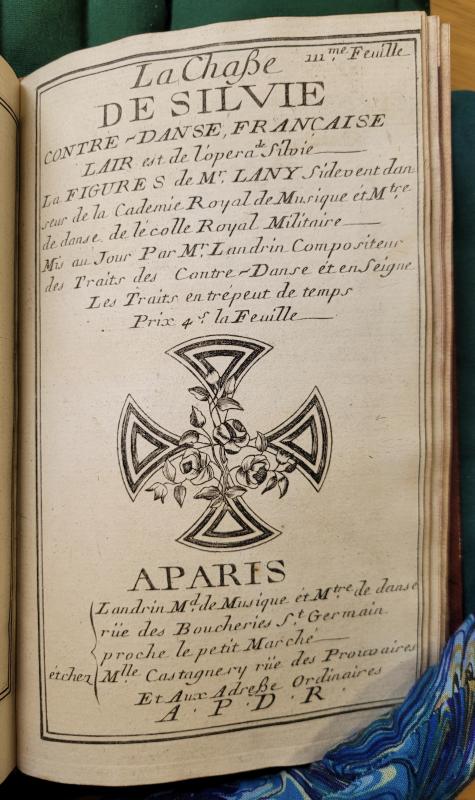 La Chaße IIIme. Feuille
DE SILVIE
CONTRE-DANSE, FRANÇAISE
LAIR est de l'opera de Silvie
La FIGURES de Mr. LANY Sidevent dan
seur de la Cademie Royal de Musique ét Mtre.
de danse de le colle Royal Militaire
Mis au Jour Par Mr. Landrin Compositeur
des Traits des Contre-Danse ét enSeigne
Les Traits en trépeut de temps
Prix 4 s. la Feuille
APARIS
Landrin Md. de Musique ét Mtre de danse
rüe des Boucheries St. Germain
proche le petit Marché
étchez Mlle Castagnery rüe des Prouvaires
Et Aux Adreße Ordinaires
A. P. D. R.